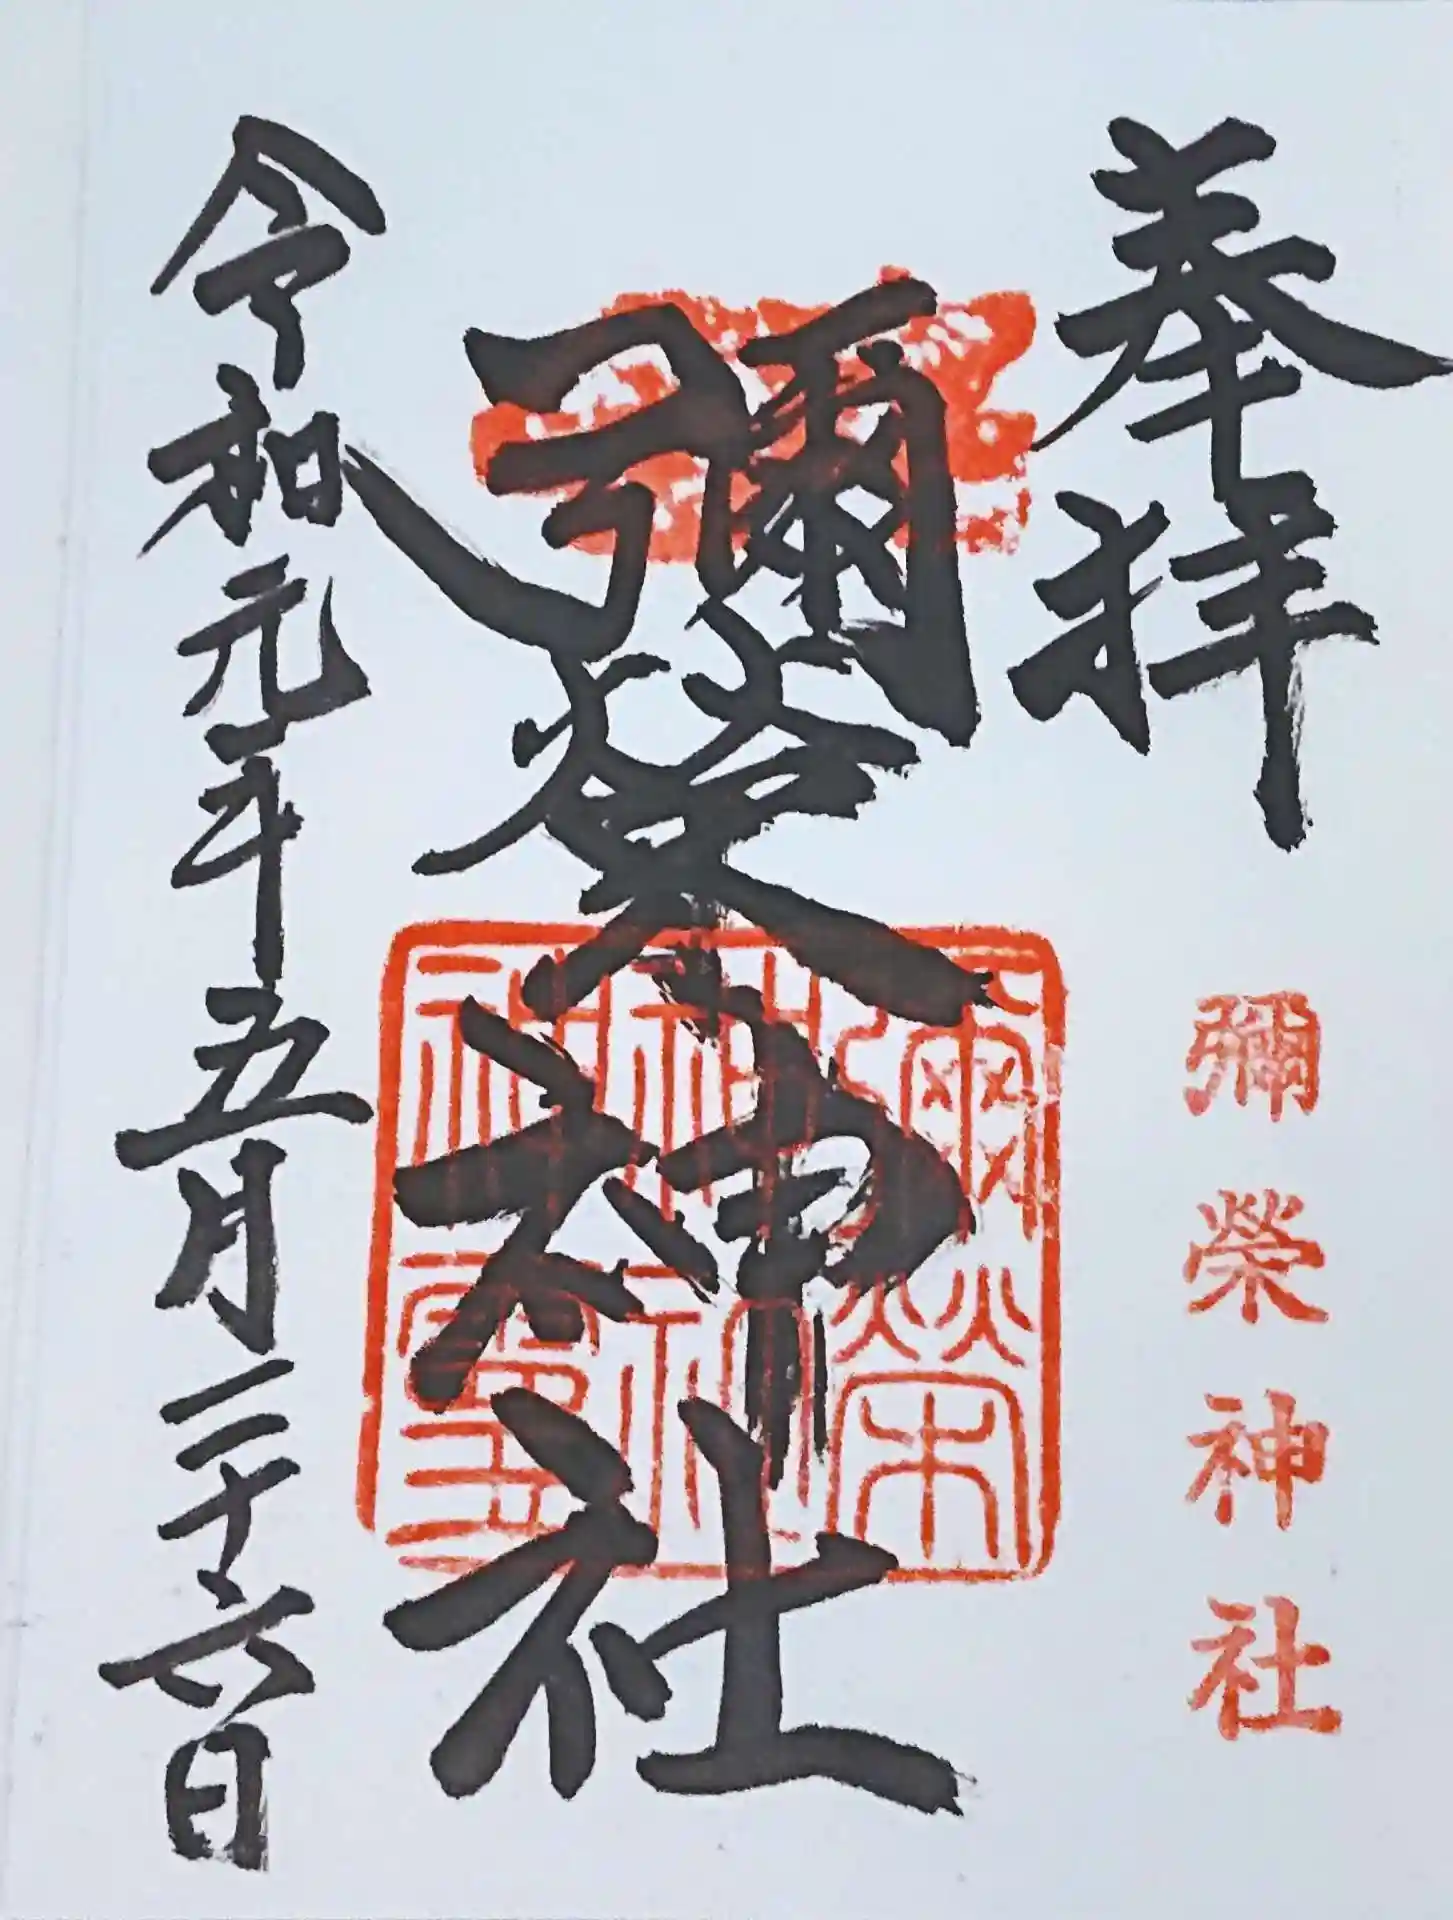 奉拝
彌榮神社
彌榮神社
彌榮
神社
令和元年五月二十六日